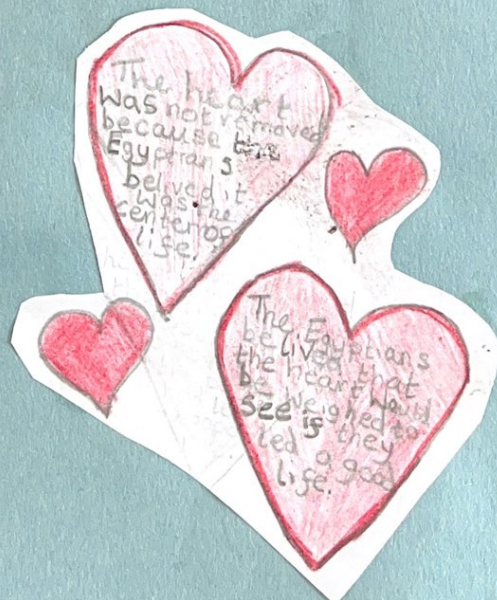 The heart
was not removed
because the
Egyptians
belived it
was the
center of
life.
The Egyptians
belived that
the heart would
be weighed to
see if they
led a good
life.